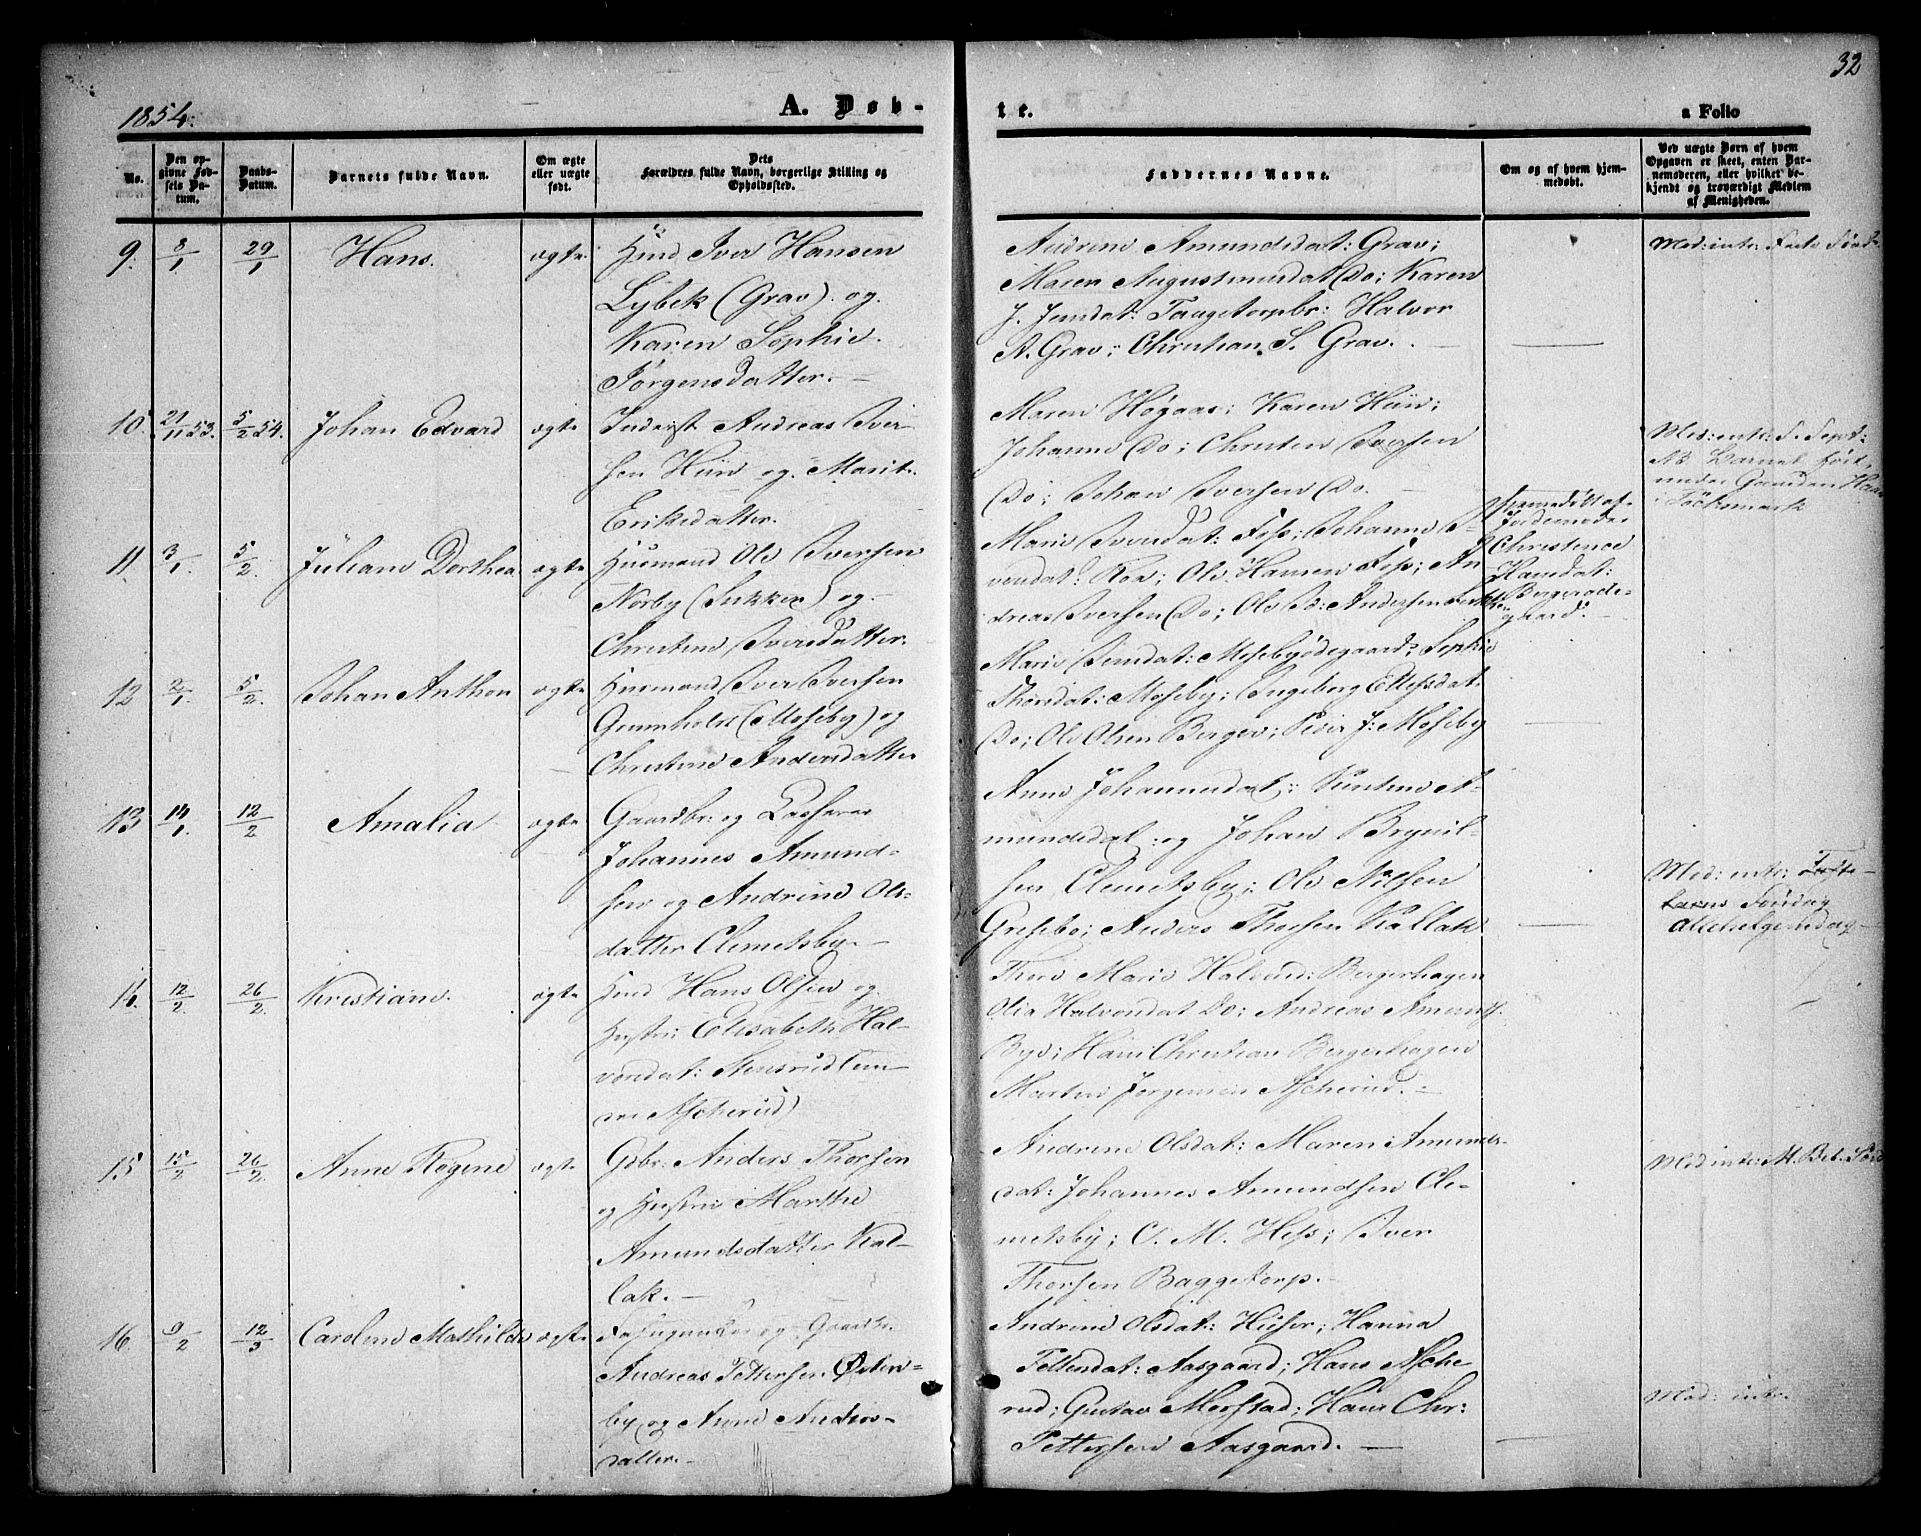 32
1854.
A. Døb-
te.
a Folio
No.
Den op-
givne Fød-
sels Da-
tum.
Daabs-
Datum.
Barnets fulde Navn.
Om ægte
eller uægte
født.
Dets
Forældres fulde Navn, borgerlige Stilling og
Opholdssted.
Faddernes Navne.
Om og af hvem hjem-
medøbt.
Ved uægte Børn af hvem
Opgaven er skeet, enten Bar-
nemoderen, eller hvilket be-
kjendt og troværdigt Medlem
af Menigheden.
9.
8/1
29/1
Hans.
ægte.
Hmd Iver Hansen
Lybek (Grav) og
Karen Sophie
Jørgensdatter.
Andrine Amundsdat: Grav;
Maren Augustinusdat Do; Karen
J. Jensdat: Taugetorpbr: Halvor
A. Grav; Christian S. Grav.
Med: intr:
10.
21/11 53.
5/2 54.
Johan Edvard
ægte
Inderst Andreas Iver-
sen Hün og Marit
Eriksdatter.
Maren Høgaas; Karen Hün;
Johanne Do; Christen
Do; Johan Iversen Do.
Med: intr:
NB Barnet født
under
i Töcksmark
11.
3/1
5/2.
Juliane Dorthea
ægte
Husmand Ole Iversen
Norby (Sukken) og
Christine Iversdatter.
Marie Iversdat: Foss; Johanne I-
versdat: Roa; Ole Hansen Foss; An-
dreas Iversen Do; Ole Andersen
Hjemmedøbt af
Jordemoder
Christence
Hansdat:
gaard.
12
2/1
5/2.
Johan Anthon
ægte
Husmand Iver Iversen
Grünholt (Moseby) og
Christine Andersdatter
Marie Jensdat: Mosebyødegaard; Sophie
Thorsdat: Moseby; Ingeborg Ellefsdat:
Do; Ole Olsen Berger; Peder J: Moseby
13
14/1
12/2
Amalia
ægte
Gaardbr: og
Johannes Amund-
sen og Andrine Ols-
datter Clemetsby.
Anne Johannesdat; Kirstine A-
mundsdat: og Johan Brynil-
sen Clemetsby; Ole Nilsen
Gresebo; Anders Thorsen Kallak
Med: intr:
Søndag
Allehelgensdag
14.
12/2.
26/2.
Kristiane.
ægte
Hmd Hans Olsen og
Hustru Elisabeth Hal-
vorsdat: Stensrud
Ascherud)
Thore Marie Halvorsd: Bergerhagen
Olia Halvorsdat Do; Andreas Amunds.
Bye; Hans Christian Bergerhagen
Martin Jørgensen Ascherud.
15
15/2
26/2.
Anne Regine
ægte
Gdbr: Anders Thorsen
og Hustru Marthe
Amundsdatter Kal-
lak.
Andrine Olsdat: Maren Amunds-
dat: Johannes Amundsen Cle-
metsby; C. M. Hess; Iver
Thorsen Baggetorp.
Med intr:
16
9/2
12/3
Caroline Mathilde
ægte
og Gaardbr.
Andreas Pettersen Østen-
by og Anne Anders-
datter.
Andrine Olsdat: Huser; Hanna
Pettersdat: Aasgaard; Hans Asche-
rud; Gustav Morstad; Hans Chr:
Pettersen Aasgaard.
Med: intr.